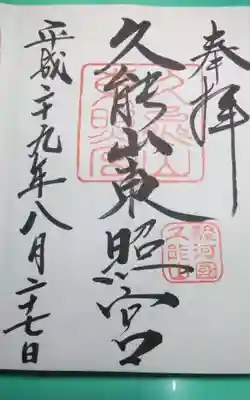 奉拝
久能山東照宮
平成二十九年八月二十七日
駿河国
久能山